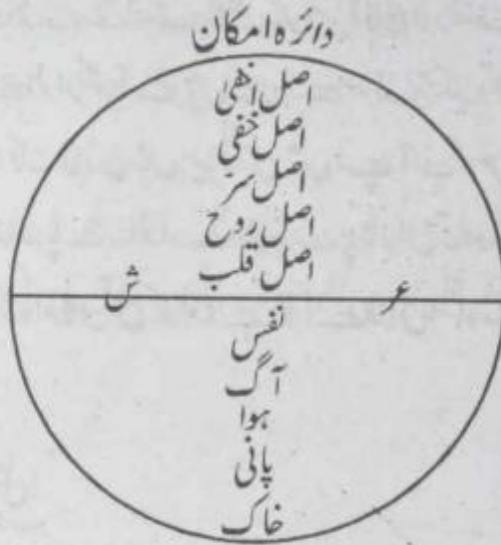 دائرہ امکان
اصل اخفیٰ
اصل خفی
اصل سرّ
اصل روح
اصل قلب
عر ش
نفس
آگ
ہوا
پانی
خاک